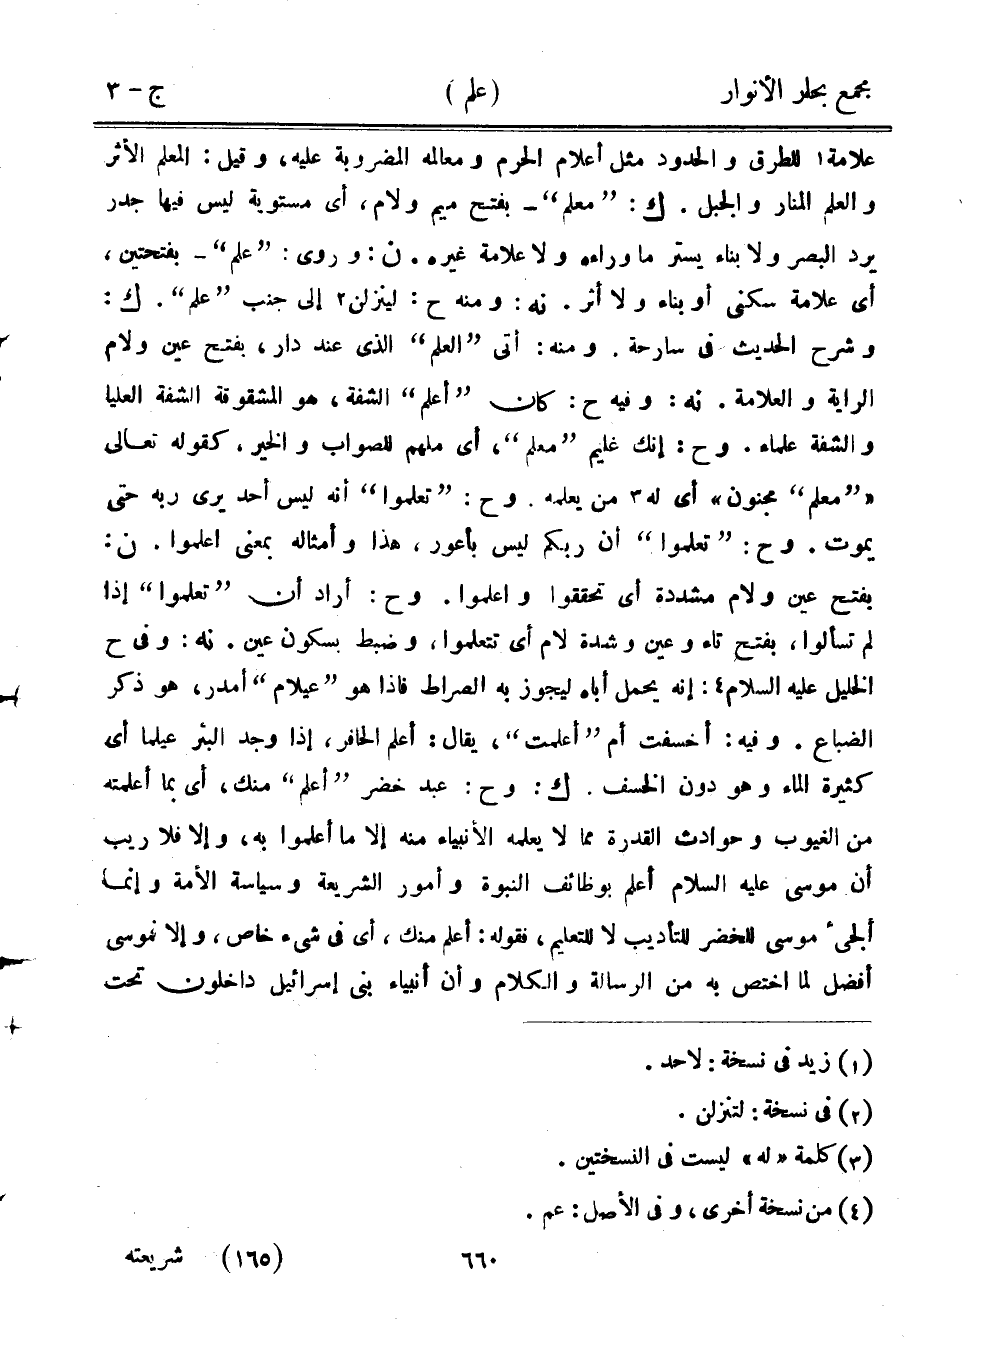 مجمع بحار الأنوار (علم) ج - ٣
علامة١ للطرق و الحدود مثل أعلام الحرم و معالمه المضروبة عليه، و قيل: المعلم الأثر
و العلم المنار و الجبل. ك: ”معلم“ - بفتح ميم و لام، أى مستوية ليس فيها جدر
يرد البصر و لا بناء يستر ما وراءه و لا علامة غيره. ن: و روى: ”علم“ - بفتحتين،
أى علامة سكنى أو بناء و لا أثر. نه: و منه ح: لينزلن٢ إلى جنب ”علم“. ك:
و شرح الحديث فى سارحة. و منه: أتى ”العلم“ الذى عند دار، بفتح عين و لام
الراية و العلامة. نه: و فيه ح: كان ”أعلم“ الشفة، هو المشقوقة الشفة العليا
و الشفة علماء. و ح: إنك غليم ”معلم“، أى ملهم للصواب و الخير، كقوله تعالى
«”معلم“ مجنون» أى له٣ من يعلمه. و ح: ”تعلموا“ أنه ليس أحد يرى ربه حتى
يموت. و ح: ”تعلموا“ أن ربكم ليس بأعور، هذا و أمثاله بمعنى اعلموا. ن:
بفتح عين و لام مشددة أى تحققوا و اعلموا. و ح: أراد أن ”تعلموا“ إذا
لم تسألوا، بفتح تاء و عين و شدة لام أى تتعلموا، و ضبط بسكون عين. نه: و فى ح
الخليل عليه السلام٤: إنه يحمل أباه ليجوز به الصراط فاذا هو ”عيلام“ أمدر، هو ذكر
الضباع. و فيه: أخسفت أم ”أعلمت“، يقال: أعلم الحافر، إذا وجد البئر عيلما أى
كثيرة الماء و هو دون الخسف. ك: و ح: عبد خضر ”أعلم“ منك، أى بما أعلمته
من الغيوب و حوادث القدرة مما لا يعلمه الأنبياء منه إلا ما أعلموا به، و إلا فلا ريب
أن موسى عليه السلام أعلم بوظائف النبوة و أمور الشريعة و سياسة الأمة و إنما
ألجئ موسى للخضر للتأديب لا للتعليم، فقوله: أعلم منك، أى فى شىء خاص، و إلا فموسى
أفضل لما اختص به من الرسالة و الكلام و أن أنبياء بنى إسرائيل داخلون تحت
(١) زيد فى نسخة: لاحد.
(٢) فى نسخة: لتنزلن.
(٣) كلمة «له» ليست فى النسختين.
(٤) من نسخة أخرى، و فى الأصل: عم.
٦٦٠ (١٦٥) شريعته